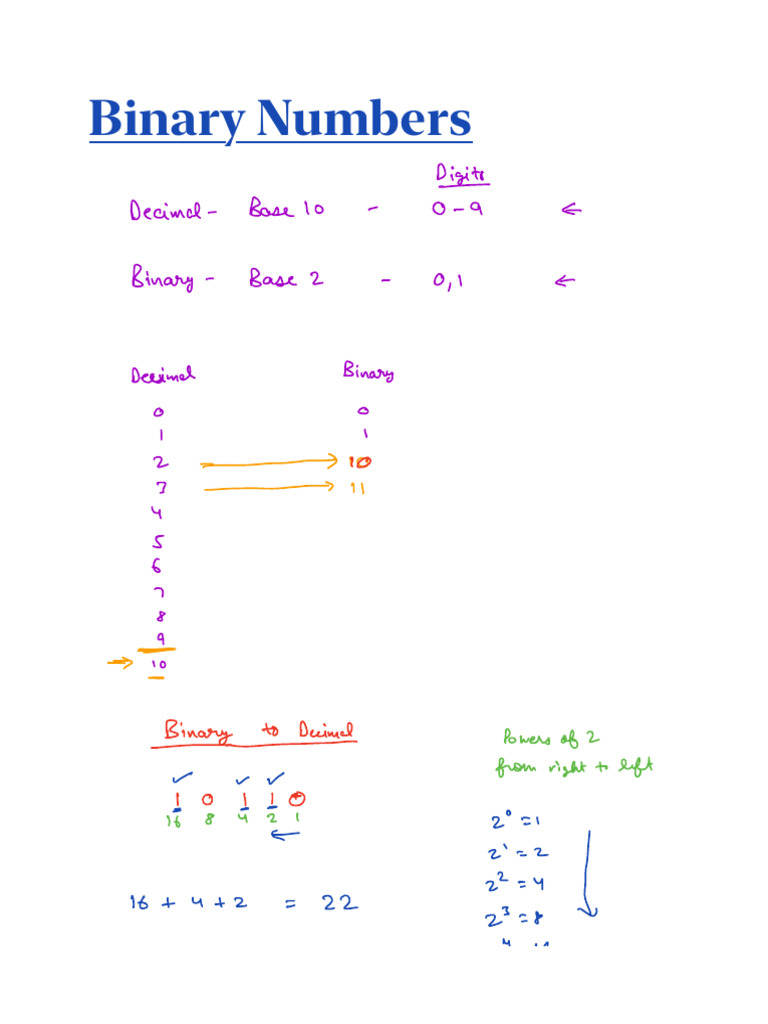 Binary Numbers
Digits
Decimal - Base 10 - 0-9 ←
Binary - Base 2 - 0,1 ←
Decimal Binary
0 0
1 1
2 → 10
3 → 11
4
5
6
7
8
9
→ 10
Binary to Decimal
1 0 1 1 0
16 8 4 2 1
16 + 4 + 2 = 22
Powers of 2
from right to left
2⁰ = 1
2¹ = 2
2² = 4
2³ = 8